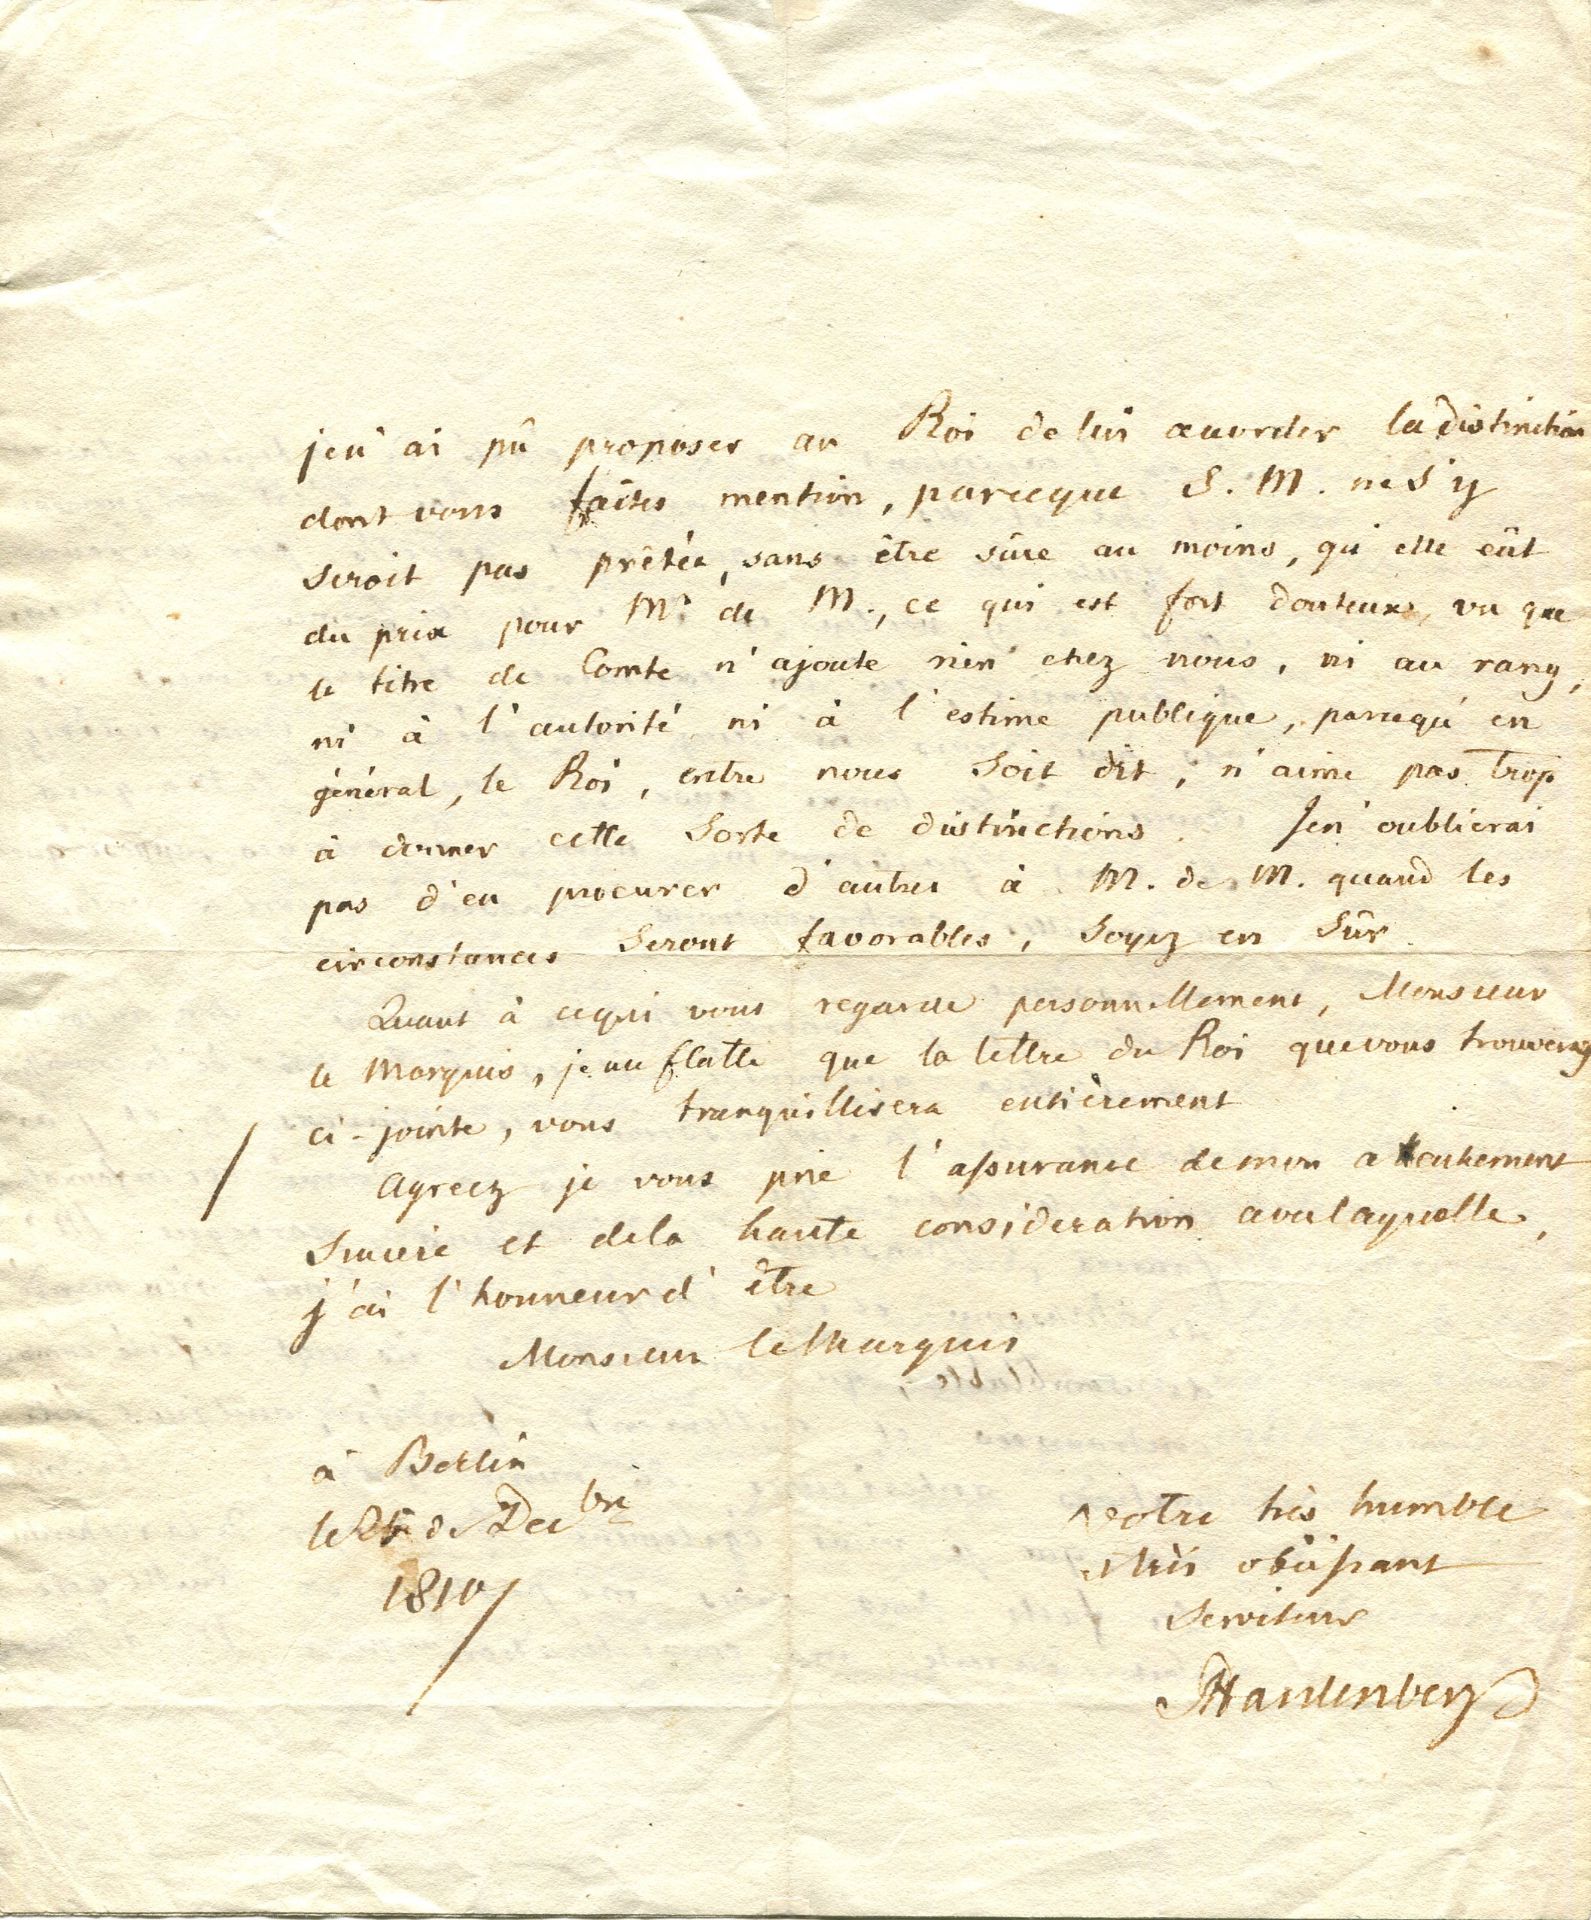 je n'ai pû proposer au Roi de lui accorder la distinction
dont vous faites mention, parceque S. M. ne s'y
seroit pas prêtée, sans être sûre au moins, qu'elle eût
du prix pour Mr de M., ce qui est fort douteux, vu que
le titre de Comte n'ajoute rien chez nous, ni au rang,
ni à l'autorité ni à l'estime publique, parcequ'en
général, le Roi, entre nous soit dit, n'aime pas trop
à donner cette sorte de distinctions. Je n'oublierai
pas d'en procurer d'autres à M. de M. quand les
circonstances seront favorables, soyez en sûr.
Quant à ce qui vous regarde personnellement, Monsieur
le Marquis, je me flatte que la lettre du Roi que vous trouverez
ci-jointe, vous tranquillisera entièrement
Agreez je vous prie l'assurance de mon attachement
sincère et de la haute consideration avec laquelle,
j'ai l'honneur d'être
Monsieur le Marquis
à Berlin
le de Decbre
1810
Votre très humble
& très obéissant
serviteur
Hardenberg